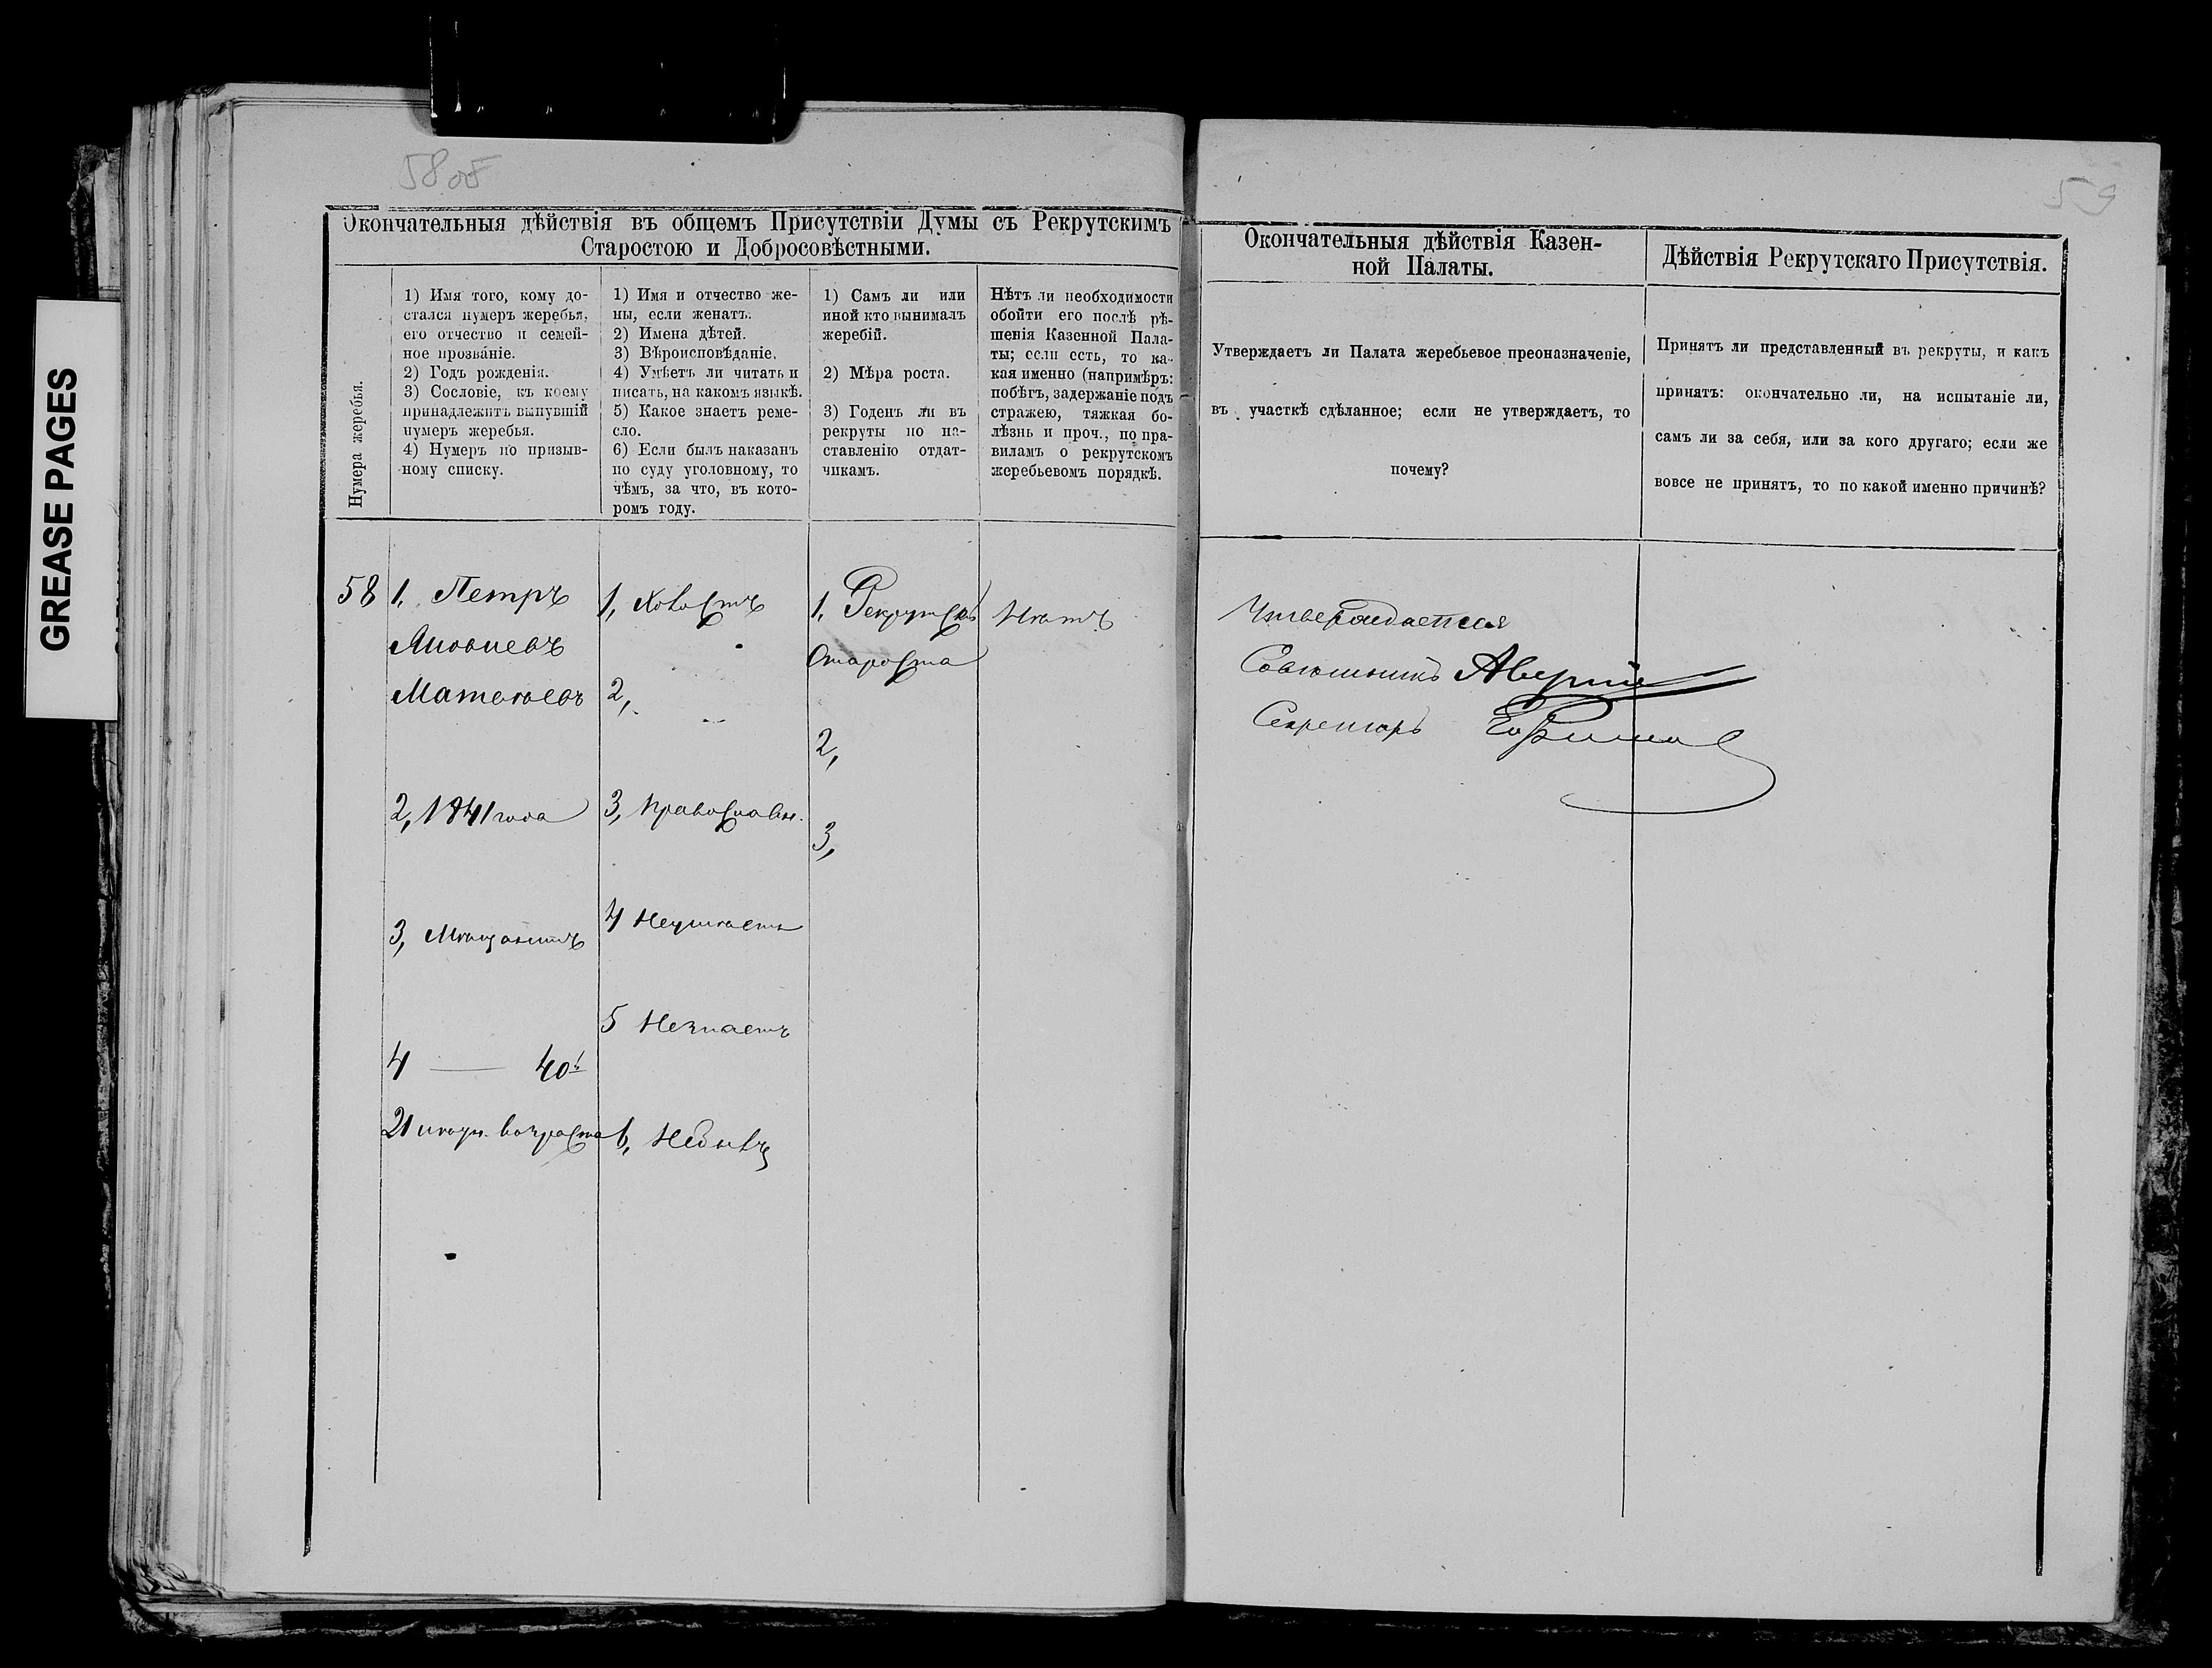 GREASE PAGES
58 об
59
Окончательныя дѣйствія въ общемъ Присутствіи Думы съ Рекрутскимъ
Старостою и Добросовѣстными.
Нумера жеребья.
1) Имя того, кому до-
стался нумеръ жеребья,
его отчество и семей-
ное прозваніе.
2) Годъ рожденія.
3) Сословіе, къ коему
принадлежитъ вынувшій
нумеръ жеребья.
4) Нумеръ по призыв-
ному списку.
1) Имя и отчество же-
ны, если женатъ.
2) Имена дѣтей.
3) Вѣроисповѣданіе.
4) Умѣетъ ли читать и
писать, на какомъ языкѣ.
5) Какое знаетъ реме-
сло.
6) Если былъ наказанъ
по суду уголовному, то
чѣмъ, за что, въ кото-
ромъ году.
1) Самъ ли или
иной кто вынималъ
жеребій.
2) Мѣра роста.
3) Годенъ ли въ
рекруты по на-
ставленію отдат-
чикамъ.
Нѣтъ ли необходимости
обойти его послѣ рѣ-
шенія Казенной Пала-
ты; если есть, то ка-
кая именно (напримѣръ:
побѣгъ, задержаніе подъ
стражею, тяжкая бо-
лѣзнь и проч., по пра-
виламъ о рекрутскомъ
жеребьевомъ порядкѣ.
58
1. Петръ
Яковлевъ
Матвѣевъ
2, 1841 года
3, Мѣщанинъ
4 — 40й
21 лѣтн. возраста
1, Холостъ
2,
3, Православн.
4 Неумѣетъ
5 Незнаетъ
6, Небылъ
1, Рекрутскій
Староста
2,
3,
Нѣтъ
Окончательныя дѣйствія Казен-
ной Палаты.
Утверждаетъ ли Палата жеребьевое преоназначеніе,
въ участкѣ сдѣланное; если не утверждаетъ, то
почему?
Утверждается
Совѣтникъ
Секретарь
Дѣйствія Рекрутскаго Присутствія.
Принятъ ли представленный въ рекруты, и какъ
принятъ: окончательно ли, на испытаніе ли,
самъ ли за себя, или за кого другаго; если же
вовсе не принятъ, то по какой именно причинѣ?